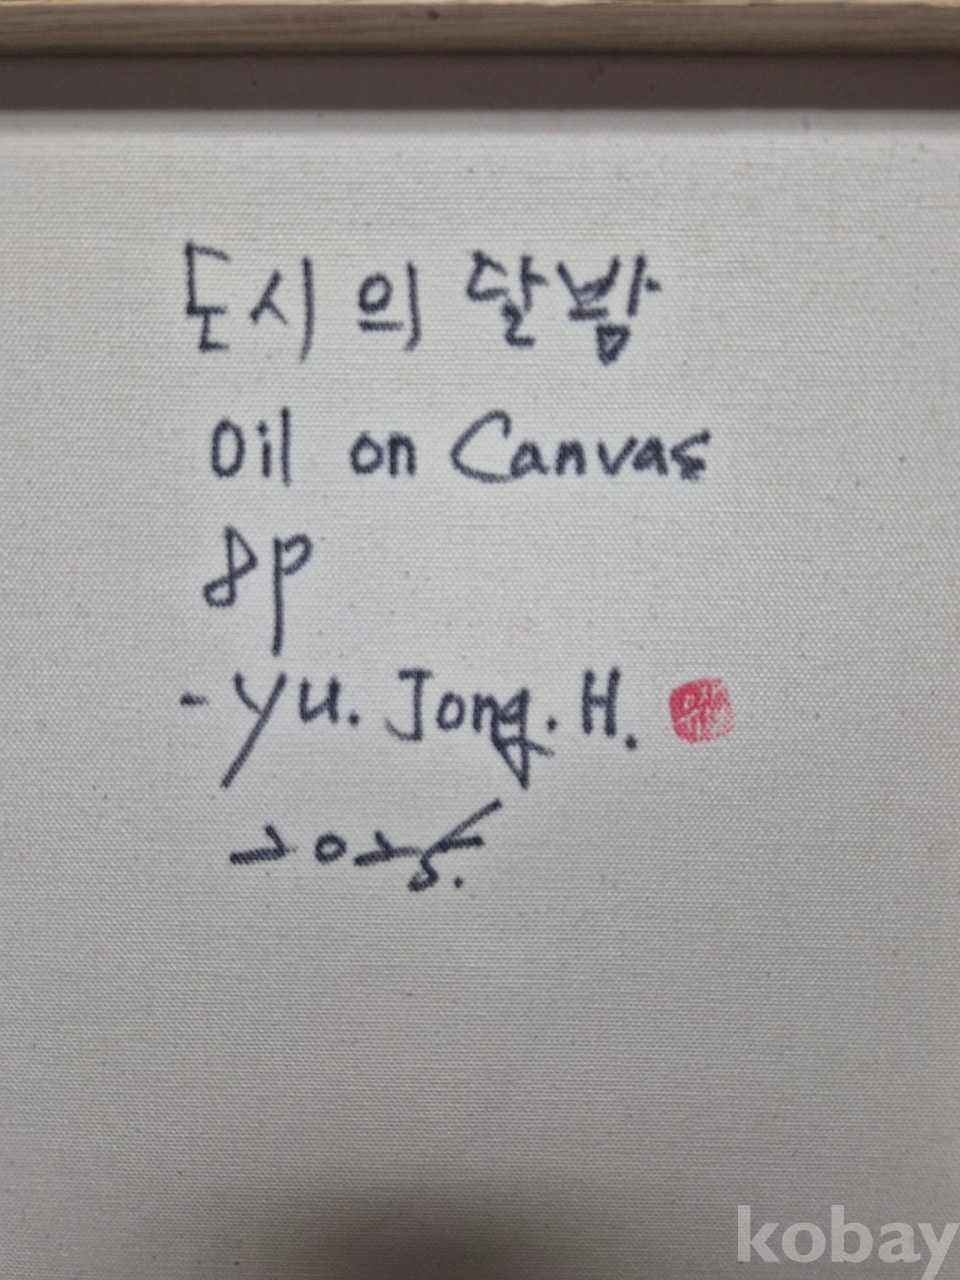 도시의 달밤
Oil on Canvas
8P
- Yu. Jong. H.
2025.
kobay